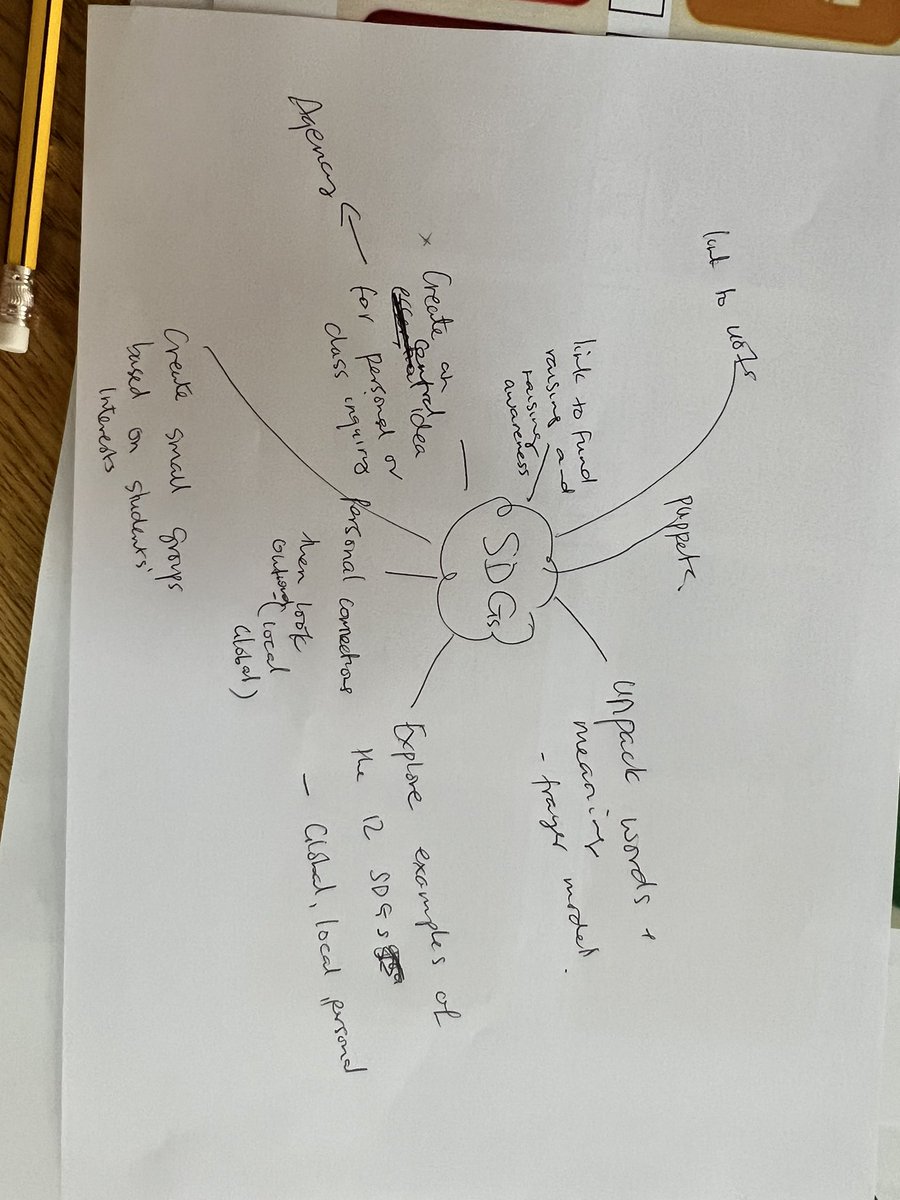 SDGs
link to UOIs
puppets
unpack words +
meaning
- frayer model.
Explore examples of
the 12 SDGs
- Global, local, personal
Personal connections
then look
(local
Global)
Create small groups
based on students'
Interests
x Create an
central idea
for personal or
class inquiry
Agency
link to fund
raising and
raising
awareness